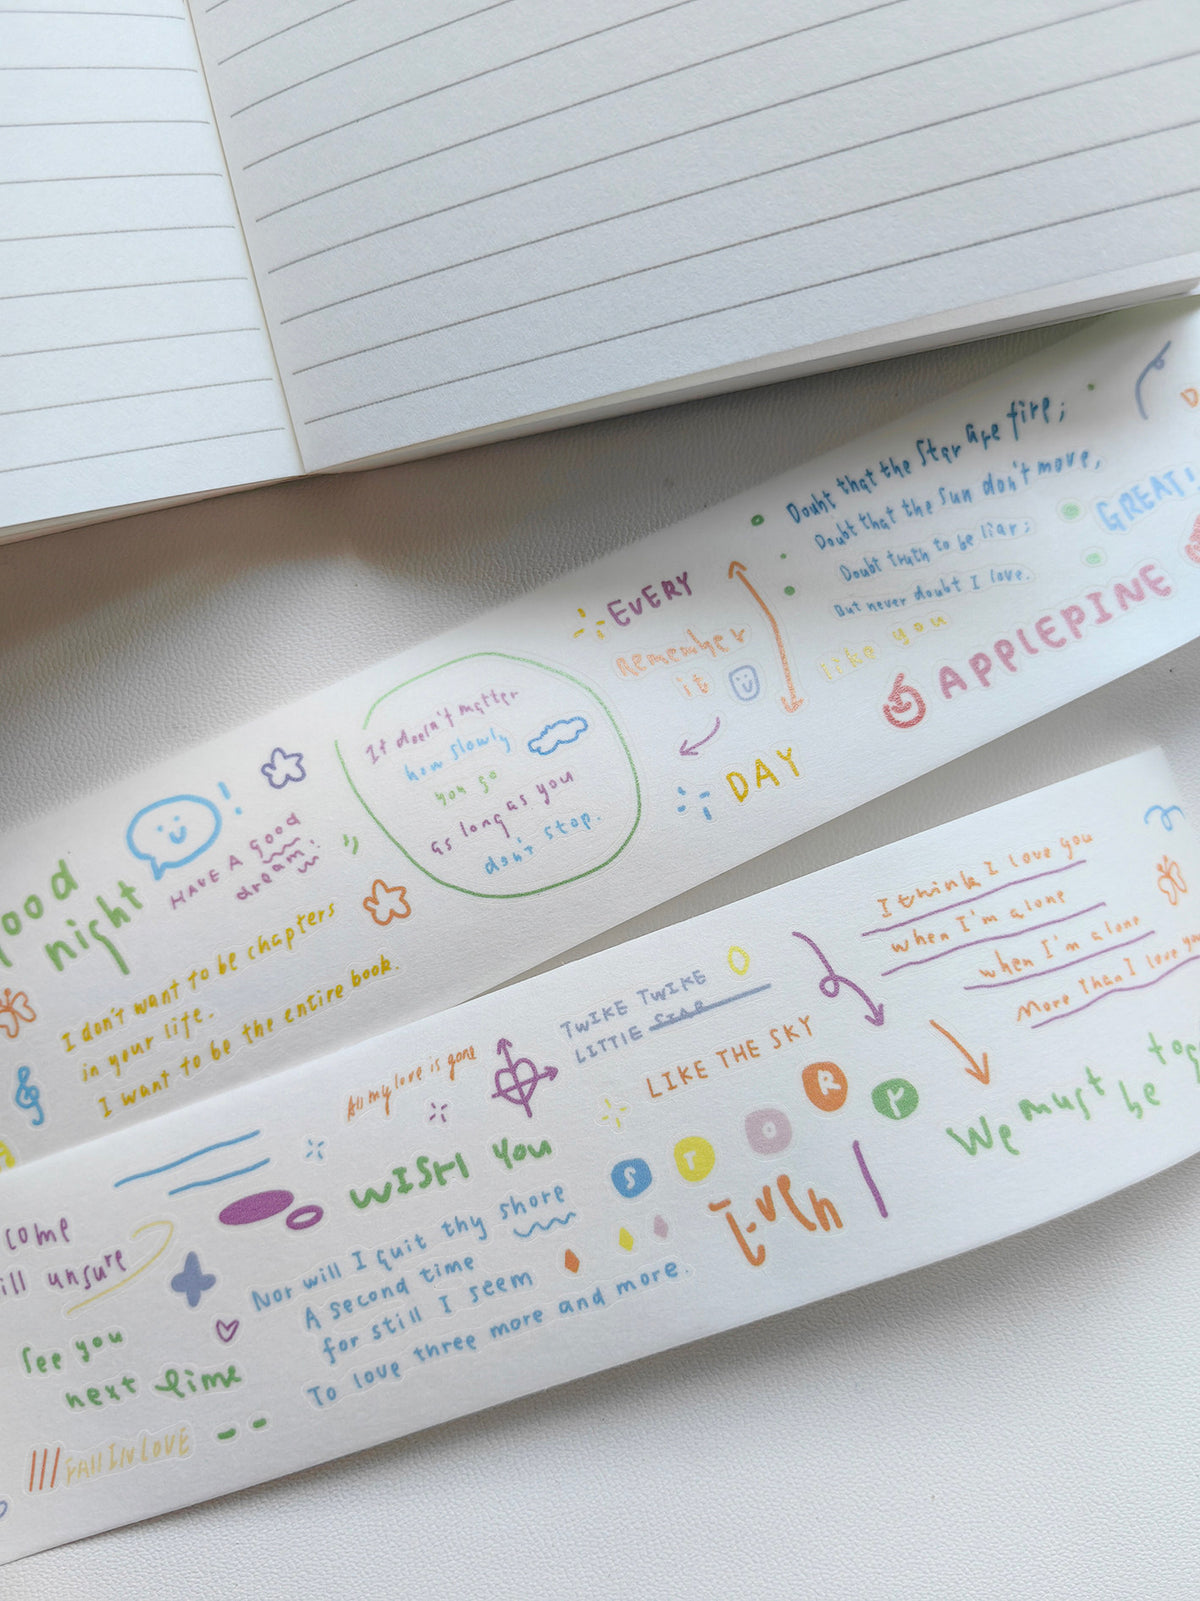 Doubt that the star are fire;
Doubt that the sun don't move,
Doubt truth to be liar;
But never doubt I love.
GREAT
like you
APPLEPINE
EVERY
Remember
it
DAY
It doesn't matter
how slowly
you go
as long as you
don't stop.
good
night
HAVE A good
dream!
I don't want to be chapters
in your life.
I want to be the entire book.
I think I love you
when I'm alone
when I'm alone
More than I love you
TWIKE TWIKE
LITTLE STAR
LIKE THE SKY
All my love is gone
WISH YOU
STORY
Even
We must be toge
come
ill unsure
See you
next time
Nor will I quit thy shore
A second time
for still I seem
To love three more and more.
FALL IN LOVE